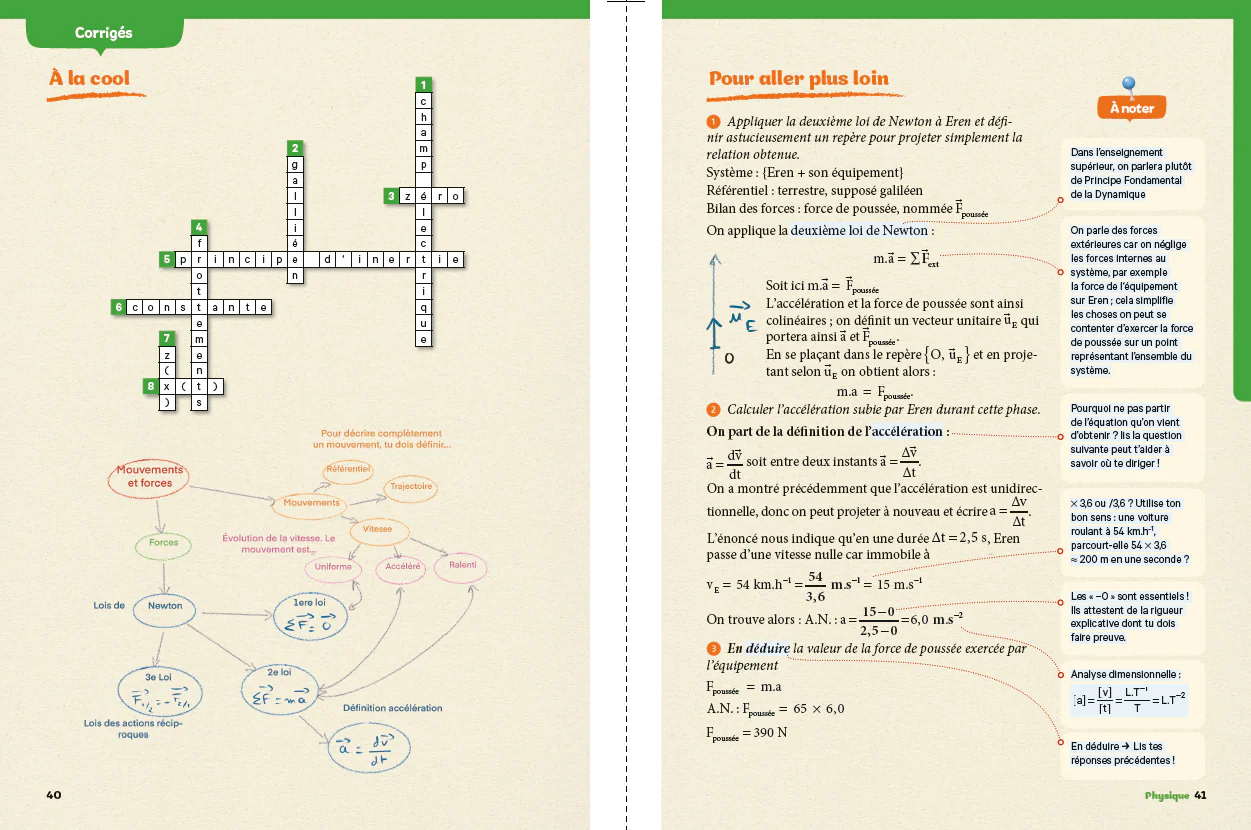 Corrigés
À la cool
1
champ électrique
2
galliéen
3
zéro
4
frottements
5
principe d'inertie
6
constante
7
z(x)
8
x(t)
Pour décrire complètement
un mouvement, tu dois définir...
Mouvements
et forces
Référentiel
Trajectoire
Mouvements
Vitesse
Forces
Évolution de la vitesse. Le
mouvement est...
Uniforme
Accéléré
Ralenti
Lois de
Newton
1ere loi
ΣF⃗ = 0⃗
3e Loi
F⃗1/2 = -F⃗2/1
Lois des actions récip-
roques
2e loi
ΣF⃗ = ma⃗
Définition accélération
a⃗ = dv⃗/dt
40
Pour aller plus loin
1 Appliquer la deuxième loi de Newton à Eren et défi-
nir astucieusement un repère pour projeter simplement la
relation obtenue.
Système : {Eren + son équipement}
Référentiel : terrestre, supposé galiléen
Bilan des forces : force de poussée, nommée F⃗poussée
On applique la deuxième loi de Newton :
m.a⃗ = ∑F⃗ext
u⃗E
O
Soit ici m.a⃗ = F⃗poussée
L'accélération et la force de poussée sont ainsi
colinéaires ; on définit un vecteur unitaire u⃗E qui
portera ainsi a⃗ et F⃗poussée.
En se plaçant dans le repère {O, u⃗E} et en proje-
tant selon u⃗E on obtient alors :
m.a = Fpoussée.
2 Calculer l'accélération subie par Eren durant cette phase.
On part de la définition de l'accélération :
a⃗ = dv⃗/dt soit entre deux instants a⃗ = Δv⃗/Δt.
On a montré précédemment que l'accélération est unidirec-
tionnelle, donc on peut projeter à nouveau et écrire a = Δv/Δt.
L'énoncé nous indique qu'en une durée Δt = 2,5 s, Eren
passe d'une vitesse nulle car immobile à
vE = 54 km.h⁻¹ = 54/3,6 m.s⁻¹ = 15 m.s⁻¹
On trouve alors : A.N. : a = (15−0)/(2,5−0) = 6,0 m.s⁻²
3 En déduire la valeur de la force de poussée exercée par
l'équipement
Fpoussée = m.a
A.N. : Fpoussée = 65 × 6,0
Fpoussée = 390 N
À noter
Dans l'enseignement
supérieur, on parlera plutôt
de Principe Fondamental
de la Dynamique
On parle des forces
extérieures car on néglige
les forces internes au
système, par exemple
la force de l'équipement
sur Eren ; cela simplifie
les choses on peut se
contenter d'exercer la force
de poussée sur un point
représentant l'ensemble du
système.
Pourquoi ne pas partir
de l'équation qu'on vient
d'obtenir ? lis la question
suivante peut t'aider à
savoir où te diriger !
× 3,6 ou /3,6 ? Utilise ton
bon sens : une voiture
roulant à 54 km.h⁻¹,
parcourt-elle 54 × 3,6
≈ 200 m en une seconde ?
Les « −0 » sont essentiels !
Ils attestent de la rigueur
explicative dont tu dois
faire preuve.
Analyse dimensionnelle :
[a] = [v]/[t] = L.T⁻¹/T = L.T⁻²
En déduire ➔ Lis tes
réponses précédentes !
Physique 41